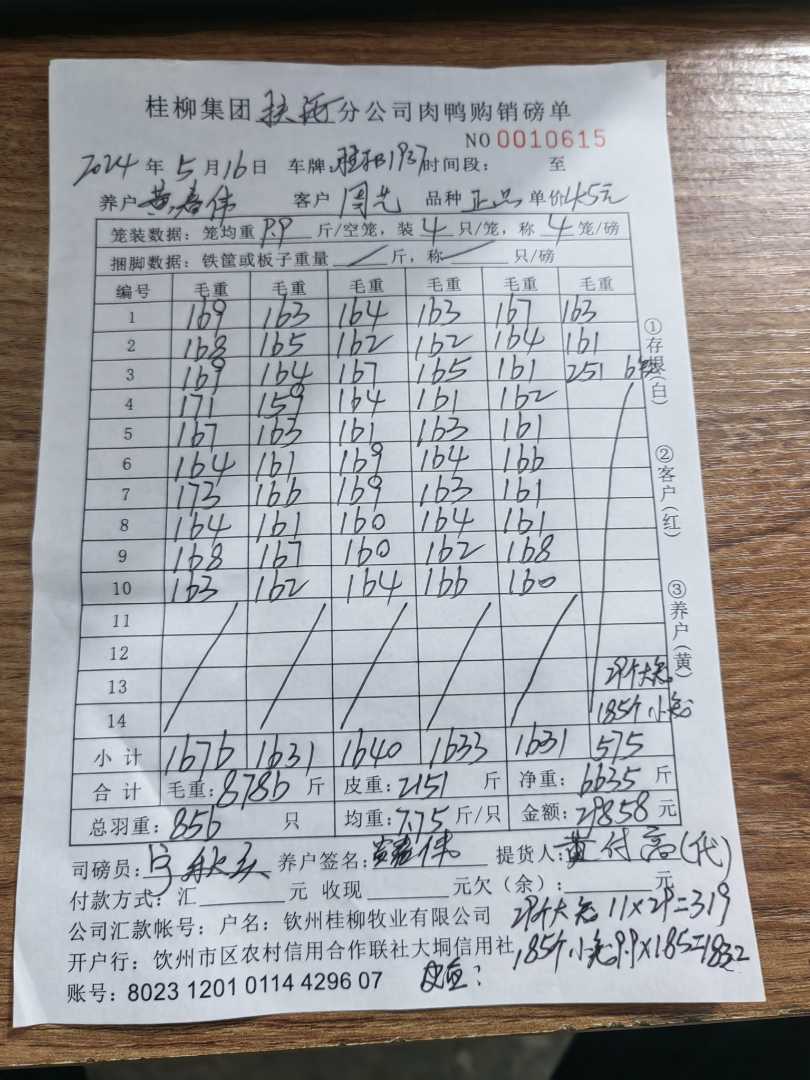 桂柳集团扶河分公司肉鸭购销磅单
NO 0010615
2024年5月16日 车牌:桂 1937 时间段: 至
养户 黄春伟 客户 周 品种 正品 单价 4.5元
笼装数据: 笼均重 9.9 斤/空笼, 装 4 只/笼, 称 4 笼/磅
捆脚数据: 铁筐或板子重量 / 斤, 称 / 只/磅
编号 毛重 毛重 毛重 毛重 毛重 毛重
1 169 163 164 163 167 163
2 168 165 162 162 164 161
3 169 164 167 165 161 251 6笼
4 171 159 164 161 162
5 167 163 161 163 161
6 164 161 169 164 166
7 173 166 169 163 161
8 164 161 160 164 161
9 168 167 160 162 168
10 163 162 164 166 160
11
12
13 29个大笼
14 185个小笼
小计 1676 1631 1640 1633 1631 575
合计 毛重: 8786 斤 皮重: 2151 斤 净重: 6635 斤
总羽重: 856 只 均重: 7.75 斤/只 金额: 29858 元
司磅员: 养户签名: 黄春伟 提货人: 黄付高(代)
付款方式: 汇 元 收现 元欠(余): 元
公司汇款帐号: 户名: 钦州桂柳牧业有限公司 29个大笼 11×29=319
开户行: 钦州市区农村信用合作联社大垌信用社 185个小笼 9.9×185=1832
账号: 8023 1201 0114 4296 07 皮重?
①存根(白)
②客户(红)
③养户(黄)